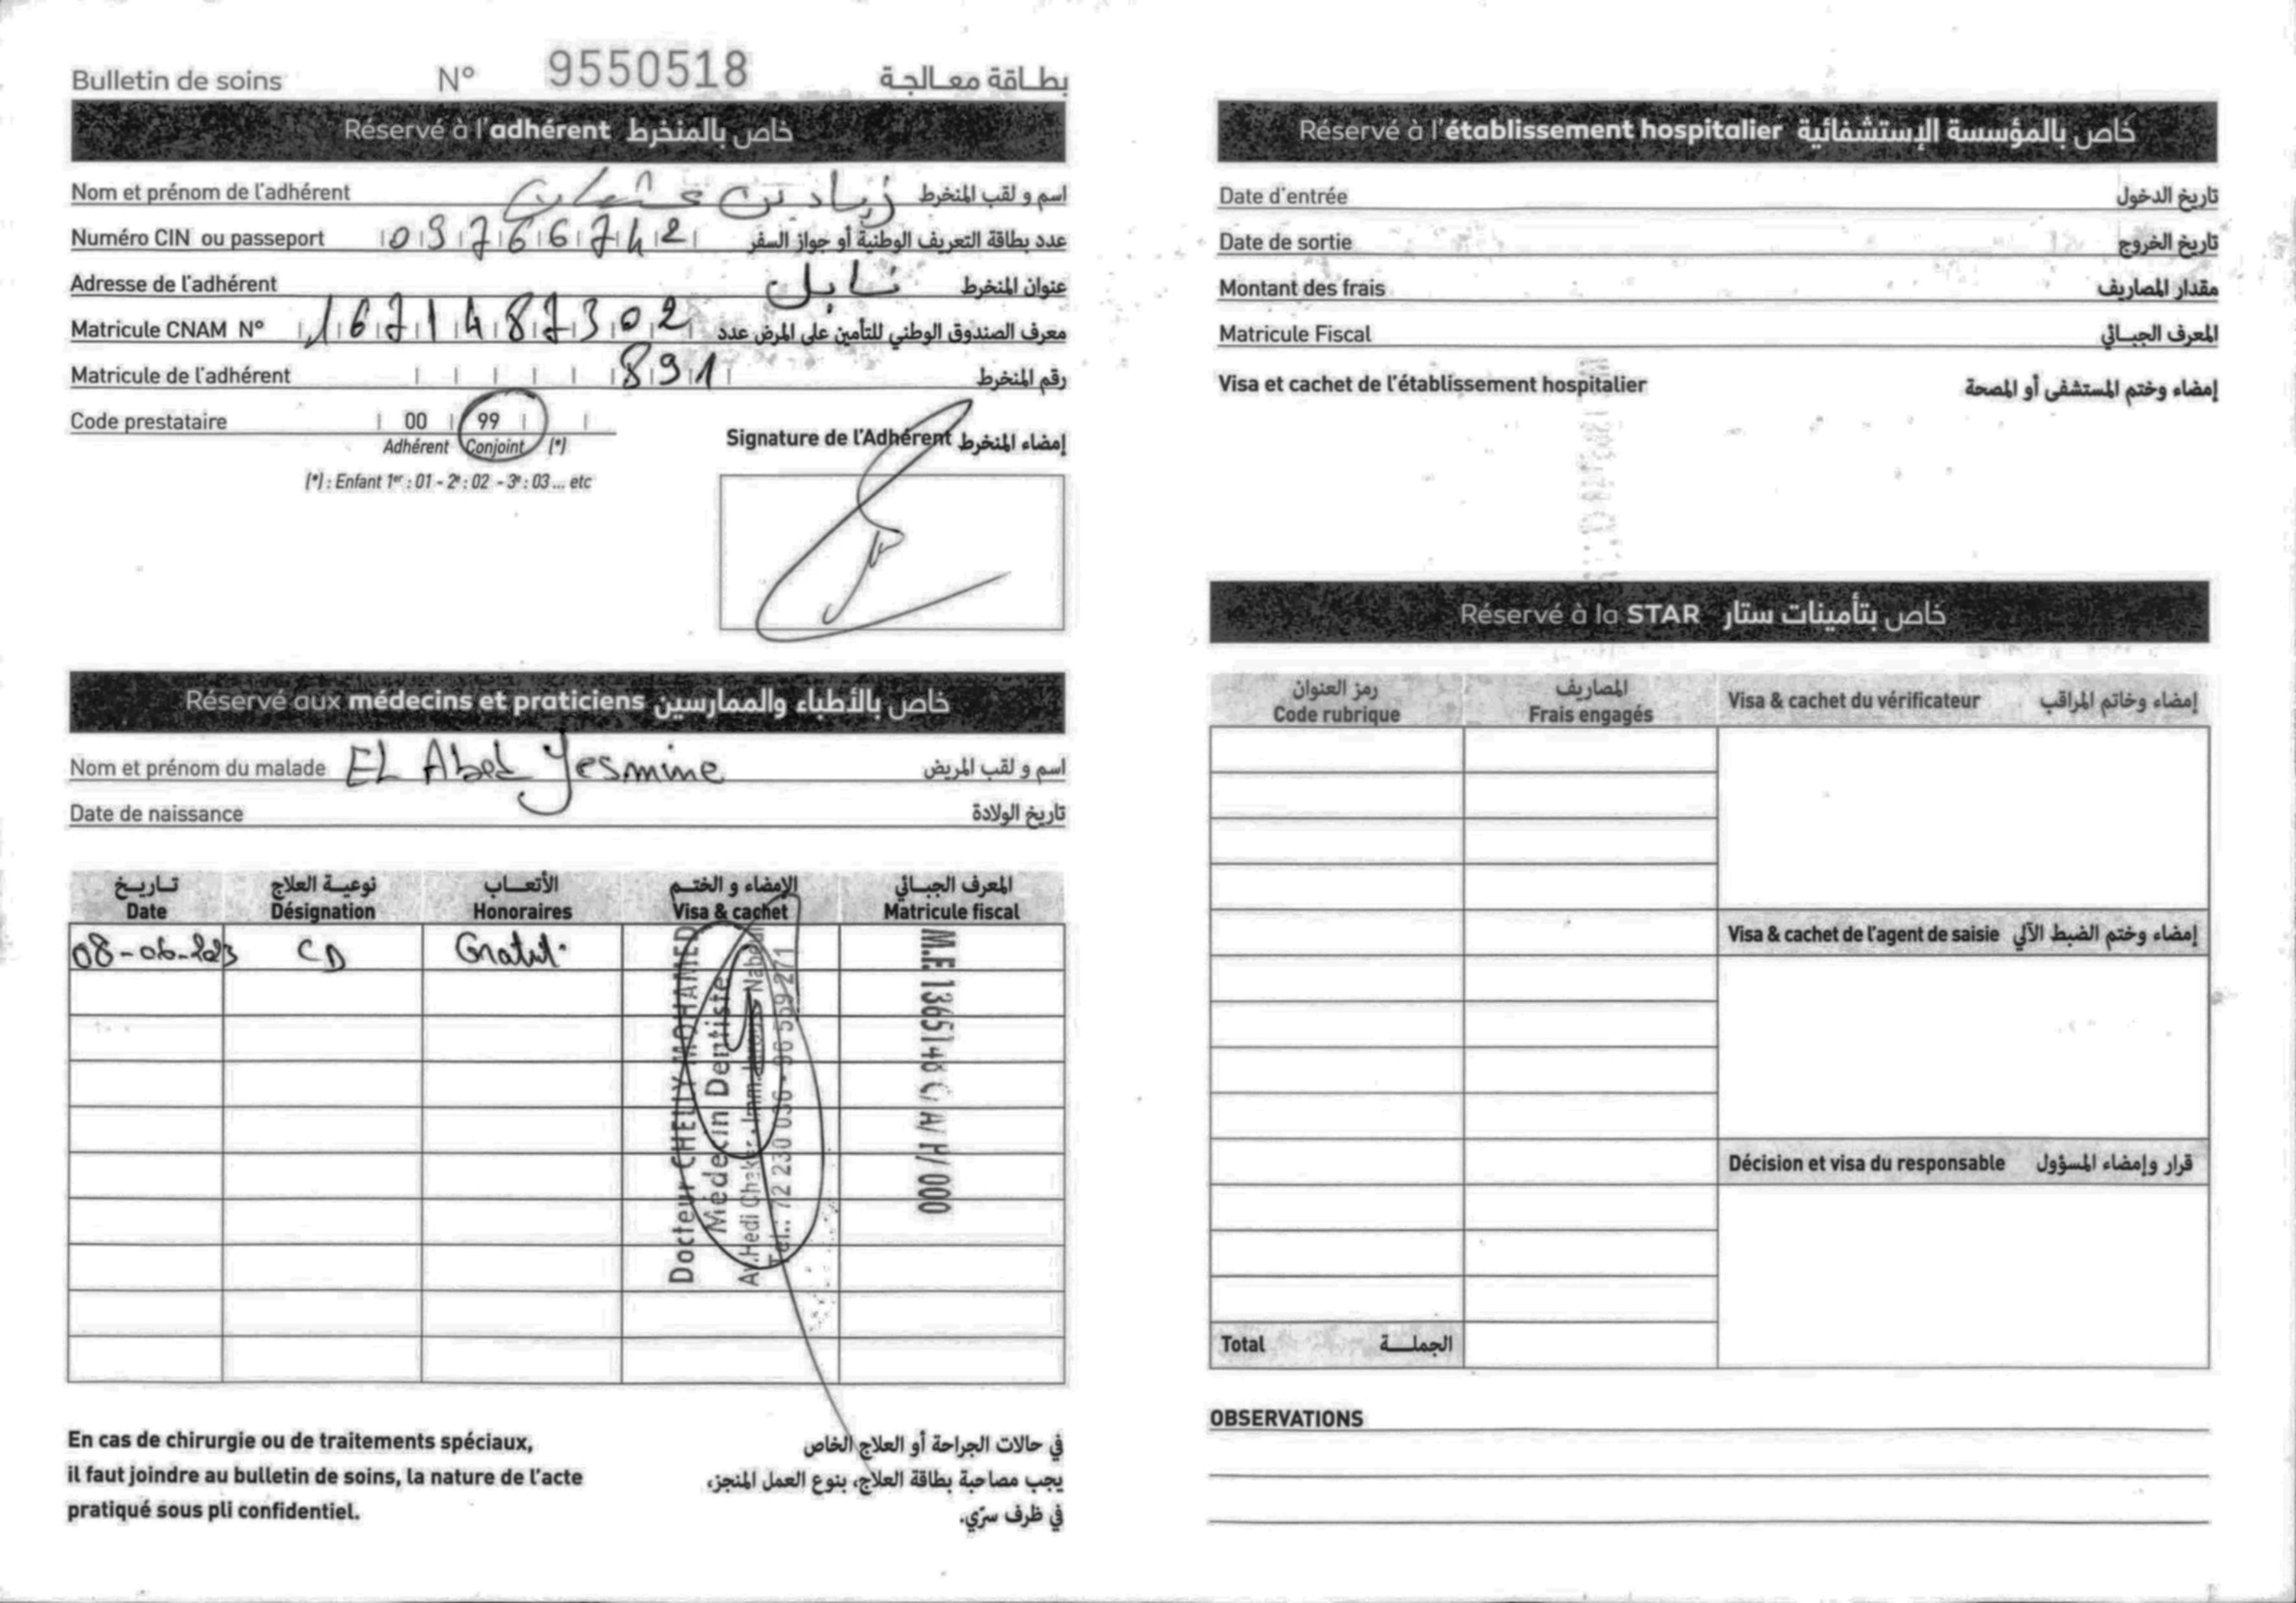 Bulletin de soins N° 9550518 بطاقة معالجة
Réservé à l'adhérent خاص بالمنخرط
Nom et prénom de l'adhérent زياد بن عثمان اسم و لقب المنخرط
Numéro CIN ou passeport 09766742 عدد بطاقة التعريف الوطنية أو جواز السفر
Adresse de l'adhérent نابل عنوان المنخرط
Matricule CNAM N° 1671487302 معرف الصندوق الوطني للتأمين على المرض عدد
Matricule de l'adhérent 891 رقم المنخرط
Code prestataire 00 99
Adhérent Conjoint (*)
(*) : Enfant 1er : 01 - 2e : 02 - 3e : 03 ... etc
Signature de l'Adhérent إمضاء المنخرط
Réservé aux médecins et praticiens خاص بالأطباء والممارسين
Nom et prénom du malade EL Abed Yesmine اسم و لقب المريض
Date de naissance تاريخ الولادة
تاريخ نوعية العلاج الأتعاب الإمضاء و الختم المعرف الجبائي
Date Désignation Honoraires Visa & cachet Matricule fiscal
08-06-2023 CD Gratuit
Docteur CHELLY MOHAMED
Médecin Dentiste
Av.Hedi Chaker Imm. Nabeul
Tel.: 72 230 036 - 96 559 271
M.F. 1365148 G/A/P/000
En cas de chirurgie ou de traitements spéciaux,
il faut joindre au bulletin de soins, la nature de l'acte
pratiqué sous pli confidentiel.
في حالات الجراحة أو العلاج الخاص
يجب مصاحبة بطاقة العلاج، بنوع العمل المنجز،
في ظرف سرّي.
Réservé à l'établissement hospitalier خاص بالمؤسسة الإستشفائية
Date d'entrée تاريخ الدخول
Date de sortie تاريخ الخروج
Montant des frais مقدار المصاريف
Matricule Fiscal المعرف الجبائي
Visa et cachet de l'établissement hospitalier إمضاء وختم المستشفى أو المصحة
Réservé à la STAR خاص بتأمينات ستار
رمز العنوان المصاريف
Code rubrique Frais engagés Visa & cachet du vérificateur إمضاء وخاتم المراقب
Visa & cachet de l'agent de saisie إمضاء وختم الضبط الآلي
Décision et visa du responsable قرار وإمضاء المسؤول
Total الجملة
OBSERVATIONS